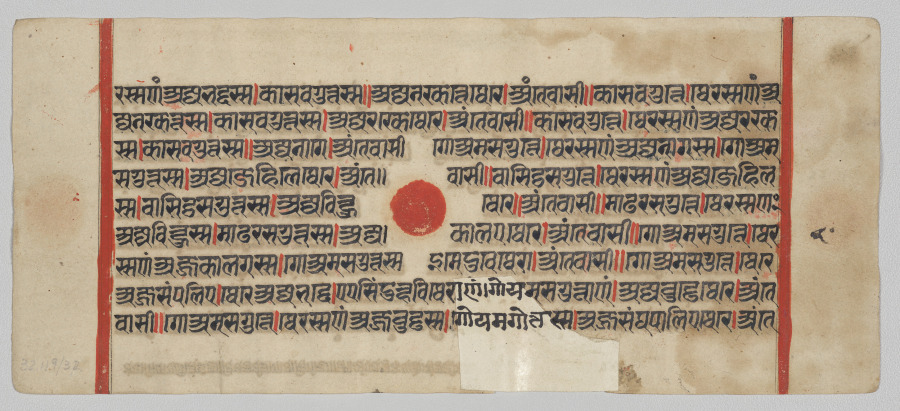 रस्सणं अज्जभद्दस्स।कासवगुत्तस्स॥अज्जनरकत्ते थेरे।अंतेवासी॥कासवगुत्ते।थेरस्सणं अ
ज्जनरकत्तस्स।कासवगुत्तस्स।अज्जररके थेरे।अंतेवासी॥कासवगुत्ते।थेरस्सणं अज्जररक
स्स।कासवगुत्तस्स॥अज्जनागे।अंतेवासी गोअमसगुत्ते।थेरस्सणं अज्जनागस्स।गोअम
सगुत्तस्स।अज्जजेहिले थेरे।अंते॥ वासी॥वासिट्ठसगुत्ते।थेरस्सणं अज्जजेहिल
स्स।वासिट्ठसगुत्तस्स।अज्जविण्हु थेरे।अंतेवासी॥माढरसगुत्ते।थेरस्सणं
अज्जविण्हुस्स।माढरसगुत्तस्स।अज्ज। कालए थेरे।अंतेवासी॥गोअमसगुत्ते।थेर
स्सणं अज्जकालगस्स।गोअमसगुत्तस्स इमे दुवे थेरा।अंतेवासी॥गोअमसगुत्ते।थेरे
अज्जसंपलिए।थेरे अज्जभद्दे।एएसिं दुन्नवि थेराणं।गोयमसगुत्ताणं।अज्जवुड्ढे थेरे।अंते
वासी॥गोअमसगुत्ते।थेरस्सणं अज्जवुड्ढस्स।गोयमगोत्तस्स।अज्जसंघपालिए थेरे।अंते